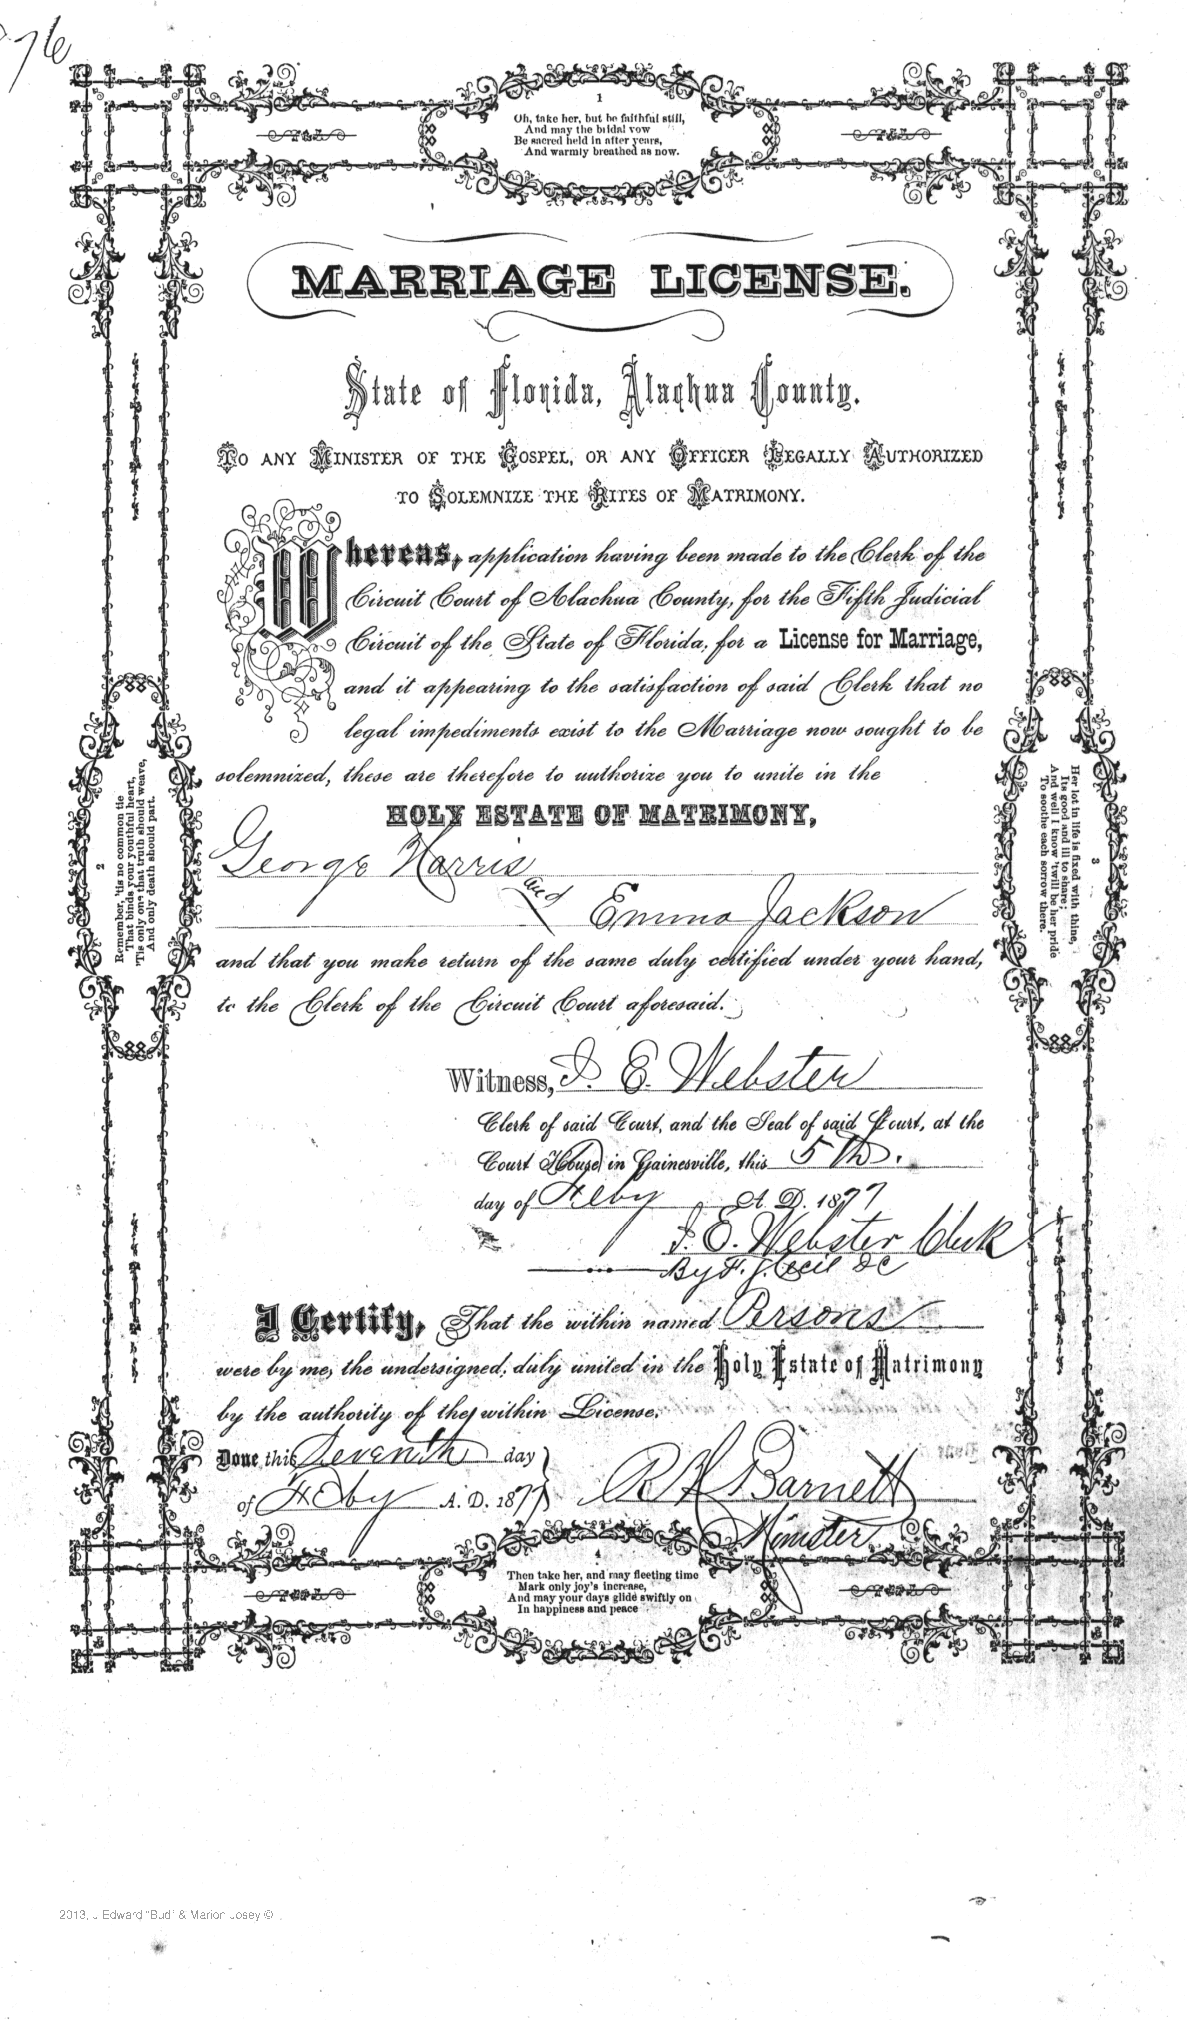 76
1
Oh, take her, but be faithful still,
And may the bridal vow
Be sacred held in after years,
And warmly breathed as now.
MARRIAGE LICENSE.
State of Florida, Alachua County.
TO ANY MINISTER OF THE GOSPEL, OR ANY OFFICER LEGALLY AUTHORIZED
TO SOLEMNIZE THE RITES OF MATRIMONY.
Whereas, application having been made to the Clerk of the
Circuit Court of Alachua County, for the Fifth Judicial
Circuit of the State of Florida, for a License for Marriage,
and it appearing to the satisfaction of said Clerk that no
legal impediments exist to the Marriage now sought to be
solemnized, these are therefore to authorize you to unite in the
HOLY ESTATE OF MATRIMONY,
George Harris
and Emma Jackson
and that you make return of the same duly certified under your hand,
to the Clerk of the Circuit Court aforesaid.
2
Remember, 'tis no common tie
That binds your youthful heart,
'Tis only one that truth should weave,
And only death should part.
3
Her lot in life is fixed with thine,
Its good and ill to share;
And well I know 'twill be her pride
To soothe each sorrow there.
Witness, J. E. Webster
Clerk of said Court, and the Seal of said Court, at the
Court House in Gainesville, this 5th.
day of Feby A. D. 1877
J. E. Webster Clerk
By F. J. Cecil DC
I Certify, That the within named Persons
were by me, the undersigned, duly united in the Holy Estate of Matrimony
by the authority of the within License.
Done this Seventh day
of Feby A. D. 1877
R H Barnett
Minister
4
Then take her, and may fleeting time
Mark only joy's increase,
And may your days glide swiftly on
In happiness and peace
2013, J Edward "Bud" & Marion Josey ©